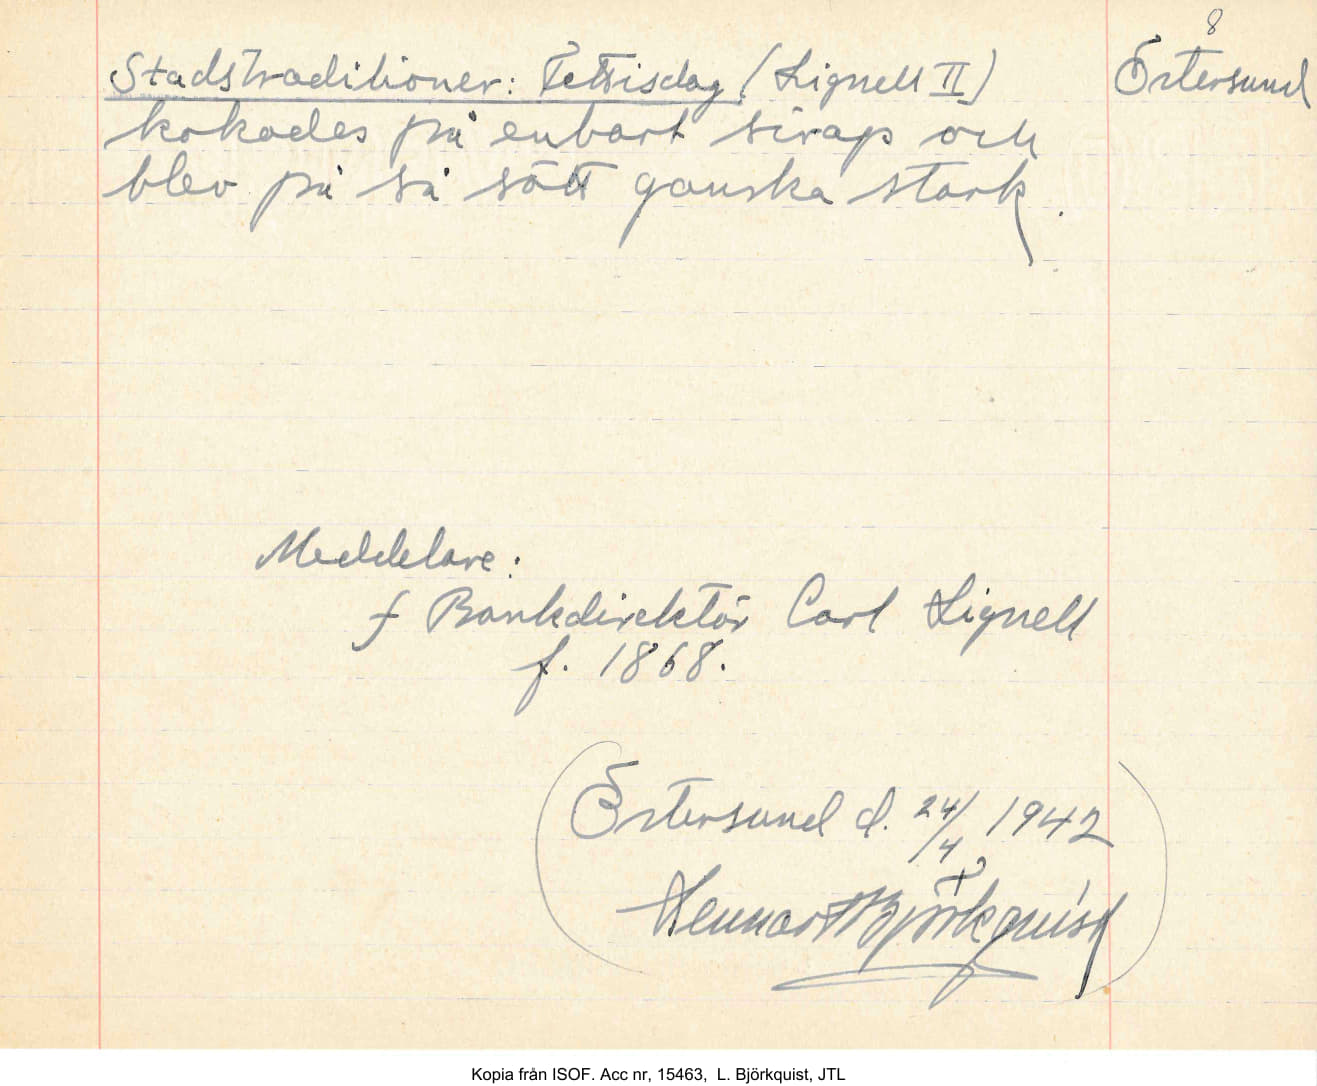 8
Stadstraditioner: Fettisdag (Lignell II) Östersund
kokades på enbart sirap och
blev på så sätt ganska stark.
Meddelare:
f Bankdirektör Carl Lignell
f. 1868.
(Östersund d. 24/4 1942
Lennart Björkquist)
Kopia från ISOF. Acc nr, 15463, L. Björkquist, JTL